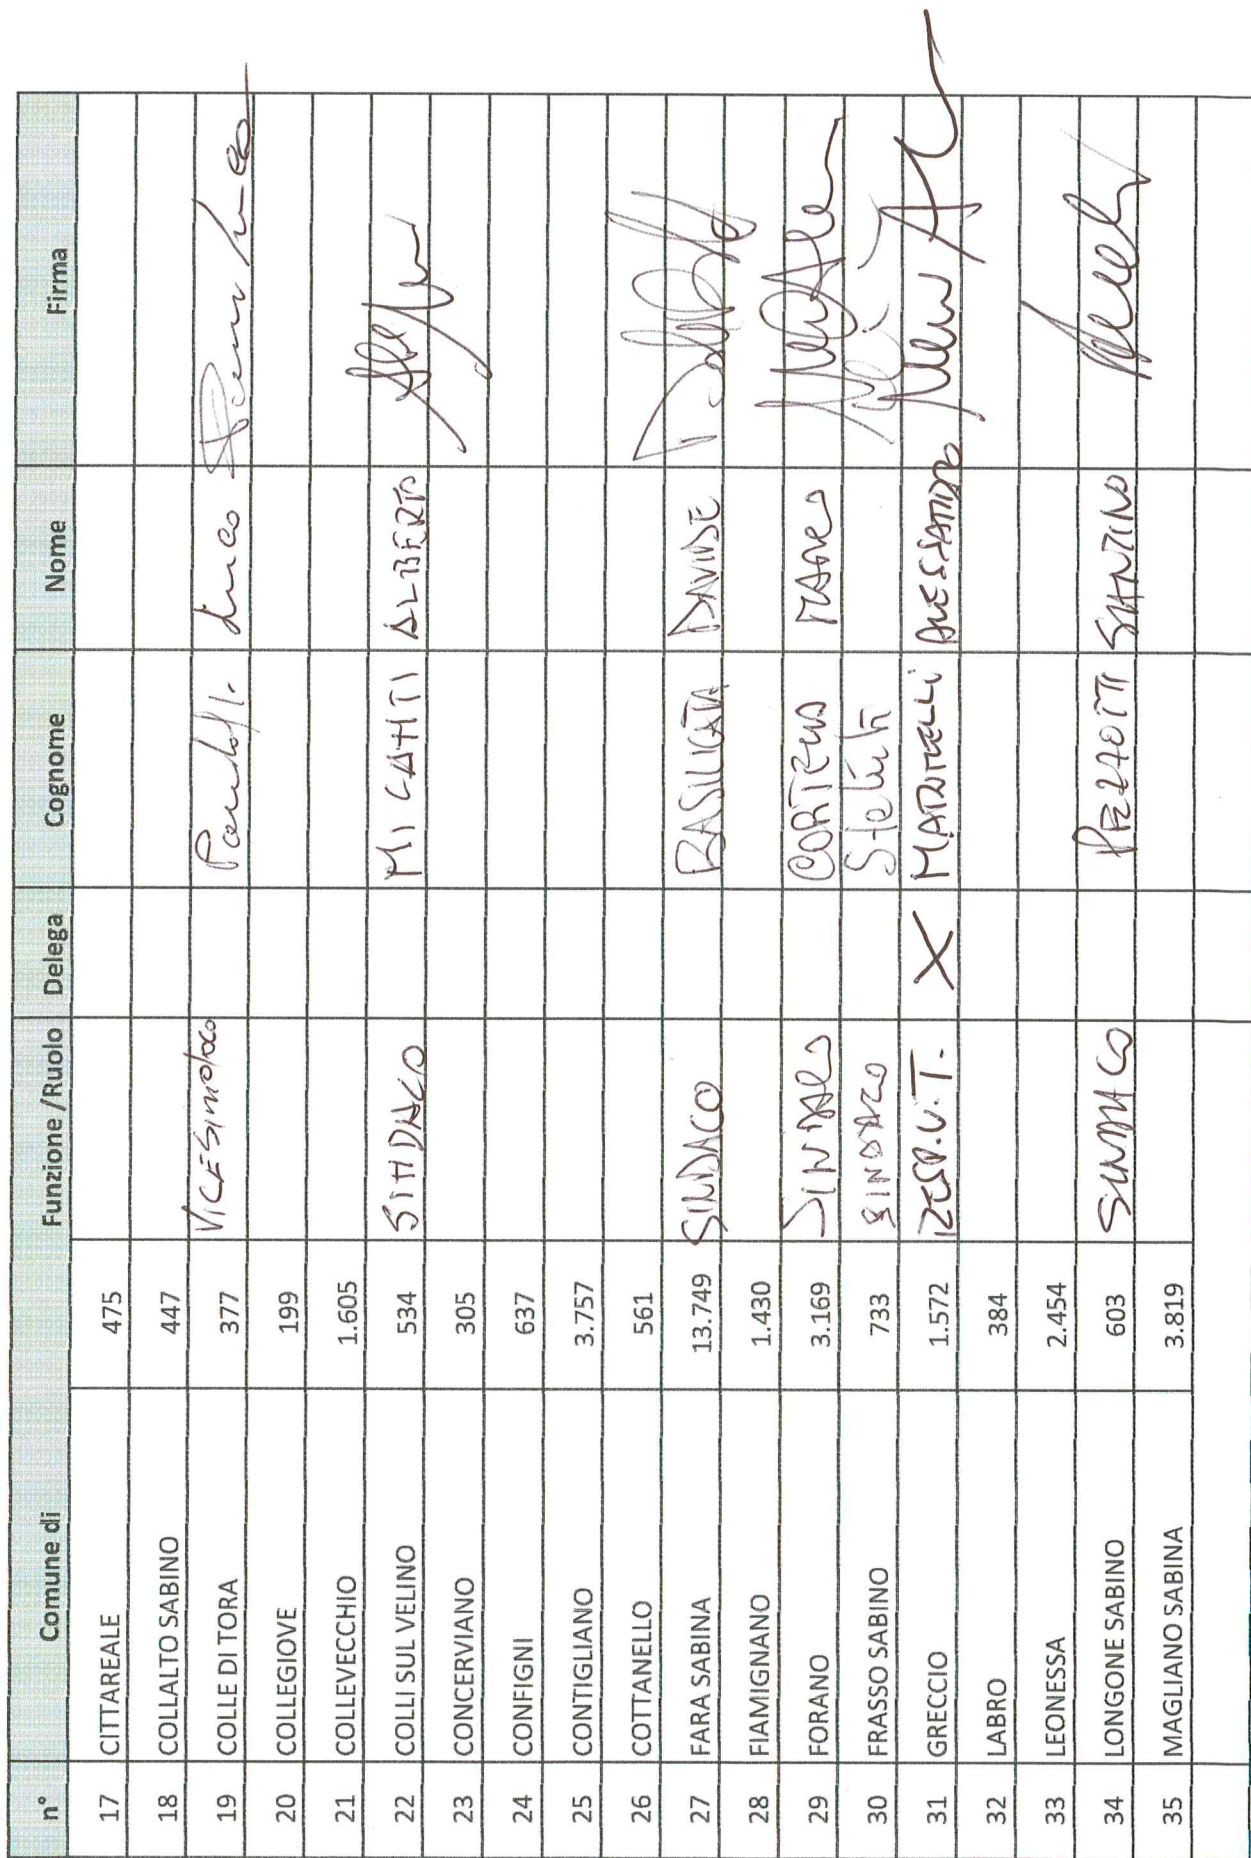 n° Comune di Funzione /Ruolo Delega Cognome Nome Firma
17 CITTAREALE 475
18 COLLALTO SABINO 447
19 COLLE DI TORA 377 VICESINDACO Pandolfi Luca
20 COLLEGIOVE 199
21 COLLEVECCHIO 1.605
22 COLLI SUL VELINO 534 SINDACO MICANTI ALBERTO
23 CONCERVIANO 305
24 CONFIGNI 637
25 CONTIGLIANO 3.757
26 COTTANELLO 561
27 FARA SABINA 13.749 SINDACO BASILICATA DAVIDE
28 FIAMIGNANO 1.430
29 FORANO 3.169 SINDACO CORTELLA MARCO
30 FRASSO SABINO 733 SINDACO
31 GRECCIO 1.572 RESP.U.T. X MARTORELLI ALESSANDRO
32 LABRO 384
33 LEONESSA 2.454
34 LONGONE SABINO 603 SINDACO PEZZOTTI SANTINO
35 MAGLIANO SABINA 3.819